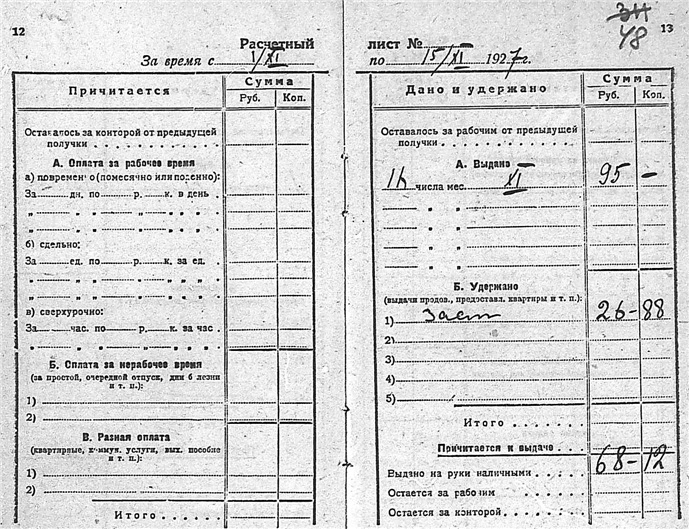 12
Расчетный
За время с 1/XI
Причитается
Сумма
Руб. Коп.
Оставалось за конторой от предыдущей
получки
А. Оплата за рабочее время
а) повременно (помесячно или поденно):
За дн. по р. к. в день
„ „ „ „ „ „
„ „ „ „ „ „
б) сдельно:
За ед. по р. к. за ед.
„ „ „ „ „ „
„ „ „ „ „ „
в) сверхурочно:
За час. по р. к. за час
„ „ „ „ „ „
Б. Оплата за нерабочее время
(за простой, очередной отпуск, дни болезни
и т. п.):
1)
2)
В. Разная оплата
(квартирные, коммун. услуги, вых. пособие
и т. п.):
1)
2)
Итого
48 13
лист №
по 15/XI 1927 г.
Дано и удержано
Сумма
Руб. Коп.
Оставалось за рабочим от предыдущей
получки
А. Выдано
числа мес. XI 95 –
– „ „
– „ „
– „ „
– „ „
Б. Удержано
(выдачи продов., предоставл. квартиры и т. п.):
1) 26-88
2)
3)
4)
5)
Итого
Причитается к выдаче
68-12
Выдано на руки наличными
Остается за рабочим
Остается за конторой